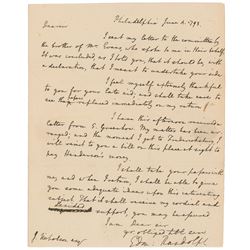 Philadelphia June 2. 1793.
Dear sir
I sent my letter to the committee, by
the brother of Mr. Evans, who spoke to me in their behalf.
It was concluded, as I told you, that it should be, with
a declaration, that I meant to undertake your side
I feel myself extremely thankful
to you for your late aid, and shall take care to
see they replaced immediately on my return
I have this afternoon received a
letter from G. My matter has been ar-
ranged, and the moment I get to
will give to you a bill on this place at eight to
pay Henderson's money.
I shall be your
and when I return, I shall be able to give
you some adequate ideas upon this interesting
subject. That it shall receive my cordial and
decided support, you may be assured
I am dear sir
yr. obliged hbl serv
Edm: Randolph
J. Nicholson esq.